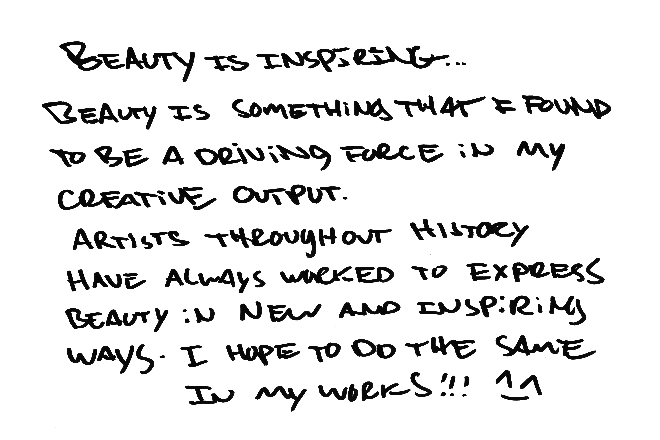 BEAUTY IS INSPIRING...
BEAUTY IS SOMETHING THAT I FOUND
TO BE A DRIVING FORCE IN MY
CREATIVE OUTPUT.
ARTISTS THROUGHOUT HISTORY
HAVE ALWAYS WORKED TO EXPRESS
BEAUTY IN NEW AND INSPIRING
WAYS. I HOPE TO DO THE SAME
IN MY WORKS!!! ^_^